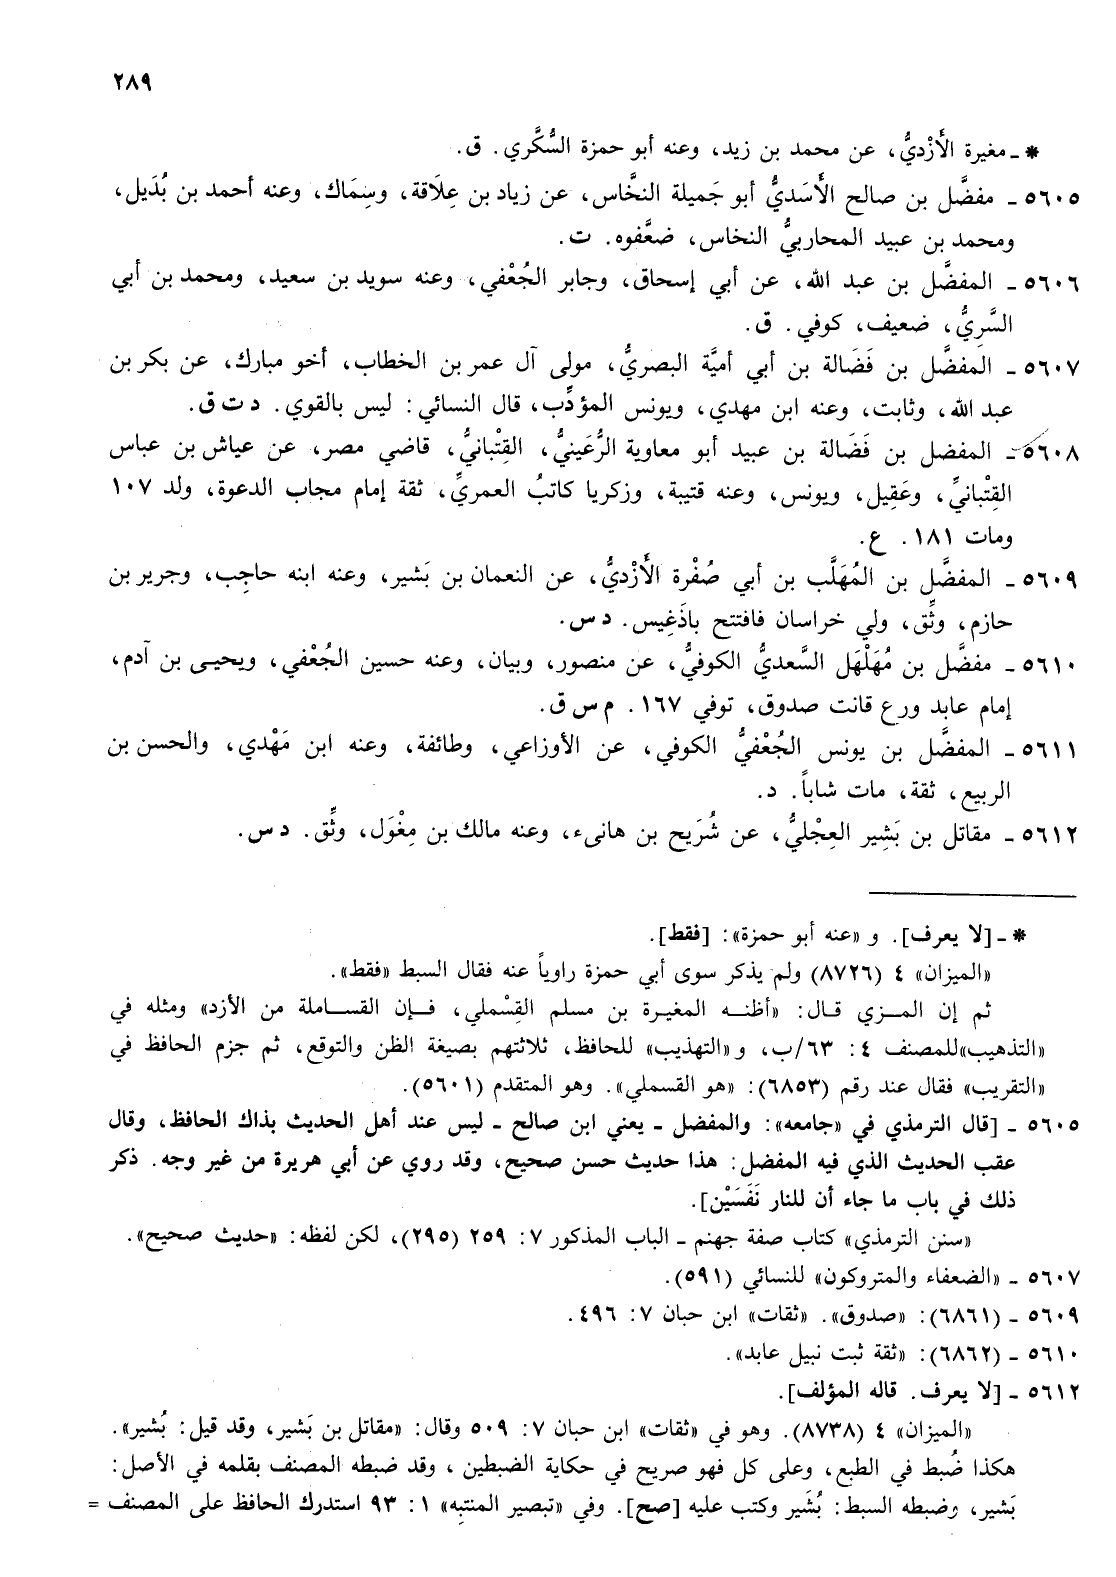 ٢٨٩
* ـ مغيرة الأَزْديُّ، عن محمد بن زيد، وعنه أبو حمزة السُّكَّري. ق.
٥٦٠٥ ـ مفضَّل بن صالح الأَسَديُّ أبو جَميلة النخَّاس، عن زياد بن عِلَاقة، وسِمَاك، وعنه أحمد بن بُدَيل،
ومحمد بن عبيد المحاربيُّ النخاس، ضعَّفوه. ت.
٥٦٠٦ ـ المفضَّل بن عبد الله، عن أبي إسحاق، وجابر الجُعْفي، وعنه سويد بن سعيد، ومحمد بن أبي
السَّرِيُّ، ضعيف، كوفي. ق.
٥٦٠٧ ـ المفضَّل بن فَضَالة بن أبي أميَّة البصريُّ، مولى آل عمر بن الخطاب، أخو مبارك، عن بكر بن
عبد الله، وثابت، وعنه ابن مهدي، ويونس المؤدِّب، قال النسائي: ليس بالقوي. د ت ق.
٥٦٠٨ ـ المفضل بن فَضَالة بن عبيد أبو معاوية الرُّعَينيُّ، القِتْبانيُّ، قاضي مصر، عن عياش بن عباس
القِتْبانيِّ، وعَقِيل، ويونس، وعنه قتيبة، وزكريا كاتبُ العمريِّ، ثقة إمام مجاب الدعوة، ولد ١٠٧
ومات ١٨١. ع.
٥٦٠٩ ـ المفضَّل بن المُهَلَّب بن أبي صُفْرة الأَزْديُّ، عن النعمان بن بَشير، وعنه ابنه حاجِب، وجرير بن
حازم، وثِّق، ولي خراسان فافتتح باذَغِيس. د س.
٥٦١٠ ـ مفضَّل بن مُهَلْهَل السَّعديُّ الكوفيُّ، عن منصور، وبيان، وعنه حسين الجُعْفي، ويحيـى بن آدم،
إمام عابد ورع قانت صدوق، توفي ١٦٧. م س ق.
٥٦١١ ـ المفضَّل بن يونس الجُعْفيُّ الكوفي، عن الأوزاعي، وطائفة، وعنه ابن مَهْدي، والحسن بن
الربيع، ثقة، مات شاباً. د.
٥٦١٢ ـ مقاتل بن بَشِير العِجْليُّ، عن شُرَيح بن هانىء، وعنه مالك بن مِغْوَل، وثِّق. د س.
* ـ [لا يعرف]. و «عنه أبو حمزة»: [فقط].
«الميزان» ٤ (٨٧٢٦) ولم يذكر سوى أبي حمزة راوياً عنه فقال السبط «فقط».
ثم إن المـزي قـال: «أظنـه المغيـرة بن مسلم القِسْملي، فـإن القسـاملة من الأزد» ومثله في
«التذهيب»للمصنف ٤: ٦٣/ب، و«التهذيب» للحافظ، ثلاثتهم بصيغة الظن والتوقع، ثم جزم الحافظ في
«التقريب» فقال عند رقم (٦٨٥٣): «هو القسملي». وهو المتقدم (٥٦٠١).
٥٦٠٥ ـ [قال الترمذي في «جامعه»: والمفضل ـ يعني ابن صالح ـ ليس عند أهل الحديث بذاك الحافظ، وقال
عقب الحديث الذي فيه المفضل: هذا حديث حسن صحيح، وقد روي عن أبي هريرة من غير وجه. ذكر
ذلك في باب ما جاء أن للنار نَفَسَيْن].
«سنن الترمذي» كتاب صفة جهنم ـ الباب المذكور ٧: ٢٥٩ (٢٩٥)، لكن لفظه: «حديث صحيح».
٥٦٠٧ ـ «الضعفاء والمتروكون» للنسائي (٥٩١).
٥٦٠٩ ـ (٦٨٦١): «صدوق». «ثقات» ابن حبان ٧: ٤٩٦.
٥٦١٠ ـ (٦٨٦٢): «ثقة ثبت نبيل عابد».
٥٦١٢ ـ [لا يعرف. قاله المؤلف].
«الميزان» ٤ (٨٧٣٨). وهو في «ثقات» ابن حبان ٧: ٥٠٩ وقال: «مقاتل بن بَشير، وقد قيل: بُشير».
هكذا ضُبط في الطبع، وعلى كل فهو صريح في حكاية الضبطين، وقد ضبطه المصنف بقلمه في الأصل:
بَشير، وضبطه السبط: بُشَير وكتب عليه [صح]. وفي «تبصير المنتبه» ١: ٩٣ استدرك الحافظ على المصنف =